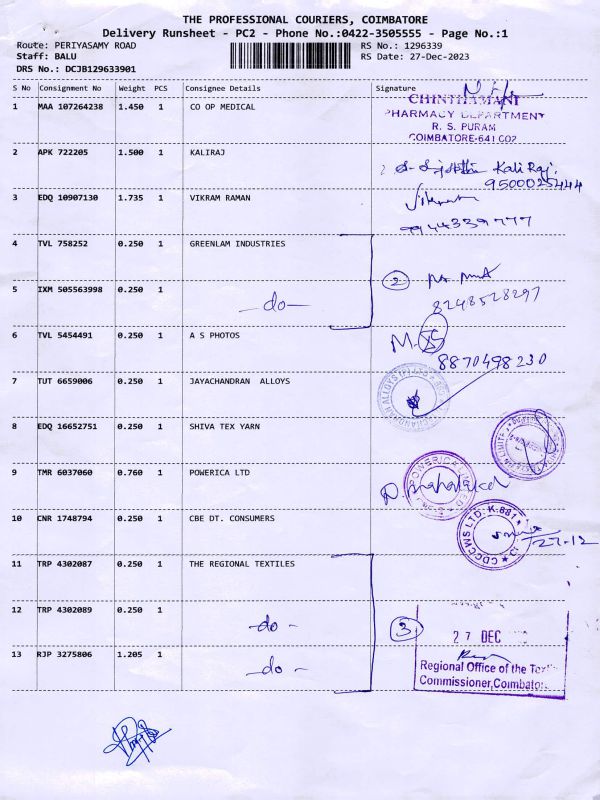 THE PROFESSIONAL COURIERS, COIMBATORE
Delivery Runsheet - PC2 - Phone No.:0422-3505555 - Page No.:1
Route: PERIYASAMY ROAD RS No.: 1296339
Staff: BALU RS Date: 27-Dec-2023
DRS No.: DCJB129633901
S No Consignment No Weight PCS Consignee Details Signature
1 MAA 107264238 1.450 1 CO OP MEDICAL
CHINTHAMANI
PHARMACY DEPARTMENT
R. S. PURAM
COIMBATORE-641 002
2 APK 722205 1.500 1 KALIRAJ
Kali Raj.
9500025444
3 EDQ 10907130 1.735 1 VIKRAM RAMAN
9944339777
4 TVL 758252 0.250 1 GREENLAM INDUSTRIES
5 IXM 505563998 0.250 1 -do- 2
8248528297
6 TVL 5454491 0.250 1 A S PHOTOS
8870498230
7 TUT 6659006 0.250 1 JAYACHANDRAN ALLOYS
8 EDQ 16652751 0.250 1 SHIVA TEX YARN
9 TMR 6037060 0.760 1 POWERICA LTD
10 CNR 1748794 0.250 1 CBE DT. CONSUMERS
CDCCWS LTD. K.881
27-12
11 TRP 4302087 0.250 1 THE REGIONAL TEXTILES
12 TRP 4302089 0.250 1 -do- 3
27 DEC
13 RJP 3275806 1.205 1 -do-
Regional Office of the
Commissioner, Coimbator